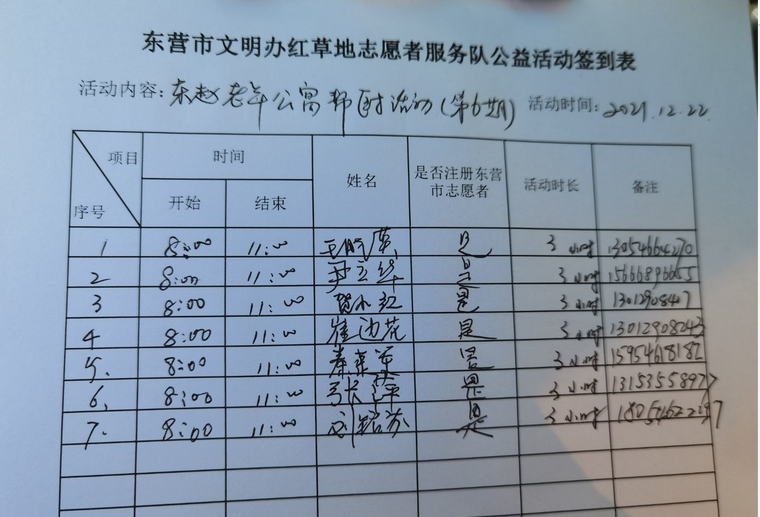 东营市文明办红草地志愿者服务队公益活动签到表
活动内容：东赵老年公寓帮助活动（第6期） 活动时间：2021.12.22
项目 时间 姓名 是否注册东营市志愿者 活动时长 备注
序号 开始 结束
1 8:00 11:00 是 3小时 13054664270
2 8:00 11:00 是 3小时 15666896655
3 8:00 11:00 贾小红 是 3小时
4 8:00 11:00 崔 花 是 3小时 13012908243
5. 8:00 11:00 秦 是 3小时 15954618182
6. 8:00 11:00 张 萍 是 3小时 13153558927
7. 8:00 11:00 是 3小时